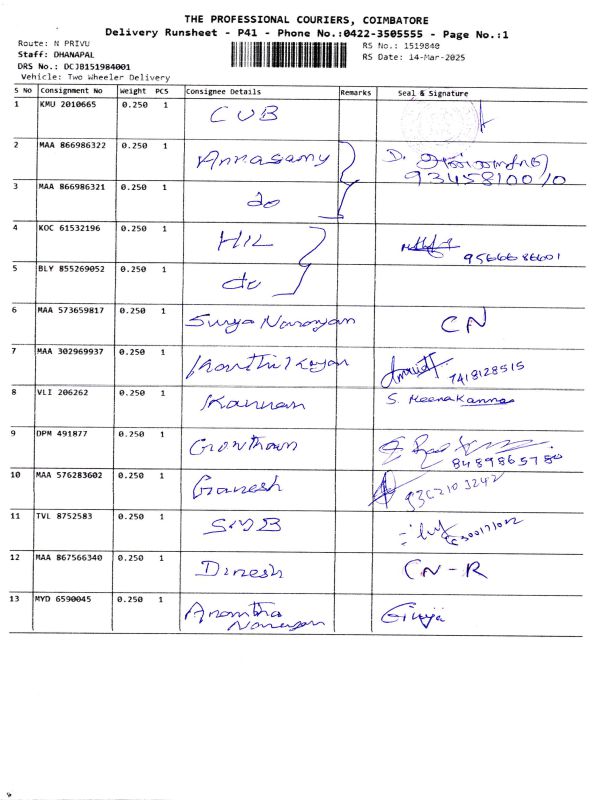 THE PROFESSIONAL COURIERS, COIMBATORE
Delivery Runsheet - P41 - Phone No.:0422-3505555 - Page No.:1
Route: N PRIVU
RS No.: 1519840
Staff: DHANAPAL
RS Date: 14-Mar-2025
DRS No.: DCJB151984001
Vehicle: Two Wheeler Delivery
S No Consignment No Weight PCS Consignee Details Remarks Seal & Signature
1 KMU 2010665 0.250 1 CUB
2 MAA 866986322 0.250 1 Annasamy D.
9345810010
3 MAA 866986321 0.250 1 do
4 KOC 61532196 0.250 1 HIL 9566686601
5 BLY 855269052 0.250 1 do
6 MAA 573659817 0.250 1 Surya Narayan CN
7 MAA 302969937 0.250 1 Karthikeyan 7418128515
8 VLI 206262 0.250 1 Kannan S. Meenakanna
9 DPM 491877 0.250 1 Gowtham 8489865780
10 MAA 576283602 0.250 1 Ganesh 9362103242
11 TVL 8752583 0.250 1 SMB
12 MAA 867566340 0.250 1 Dinesh CN-R
13 MYD 6590045 0.250 1 Anantha Girija
Narayan